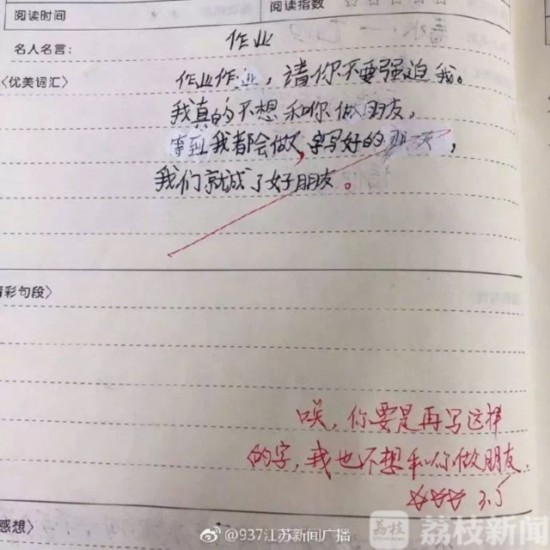 阅读时间
阅读指数 ☆☆☆☆☆
名人名言:
作业
〈优美词汇〉
作业作业，请你不要强迫我。
我真的不想和你做朋友，
等到我都会做，字写好的那天，
我们就成了好朋友。
精彩句段〉
唉，你要是再写这样
的字，我也不想和你做朋友.
3.5
感想〉
@937江苏新闻广播
荔枝
荔枝新闻